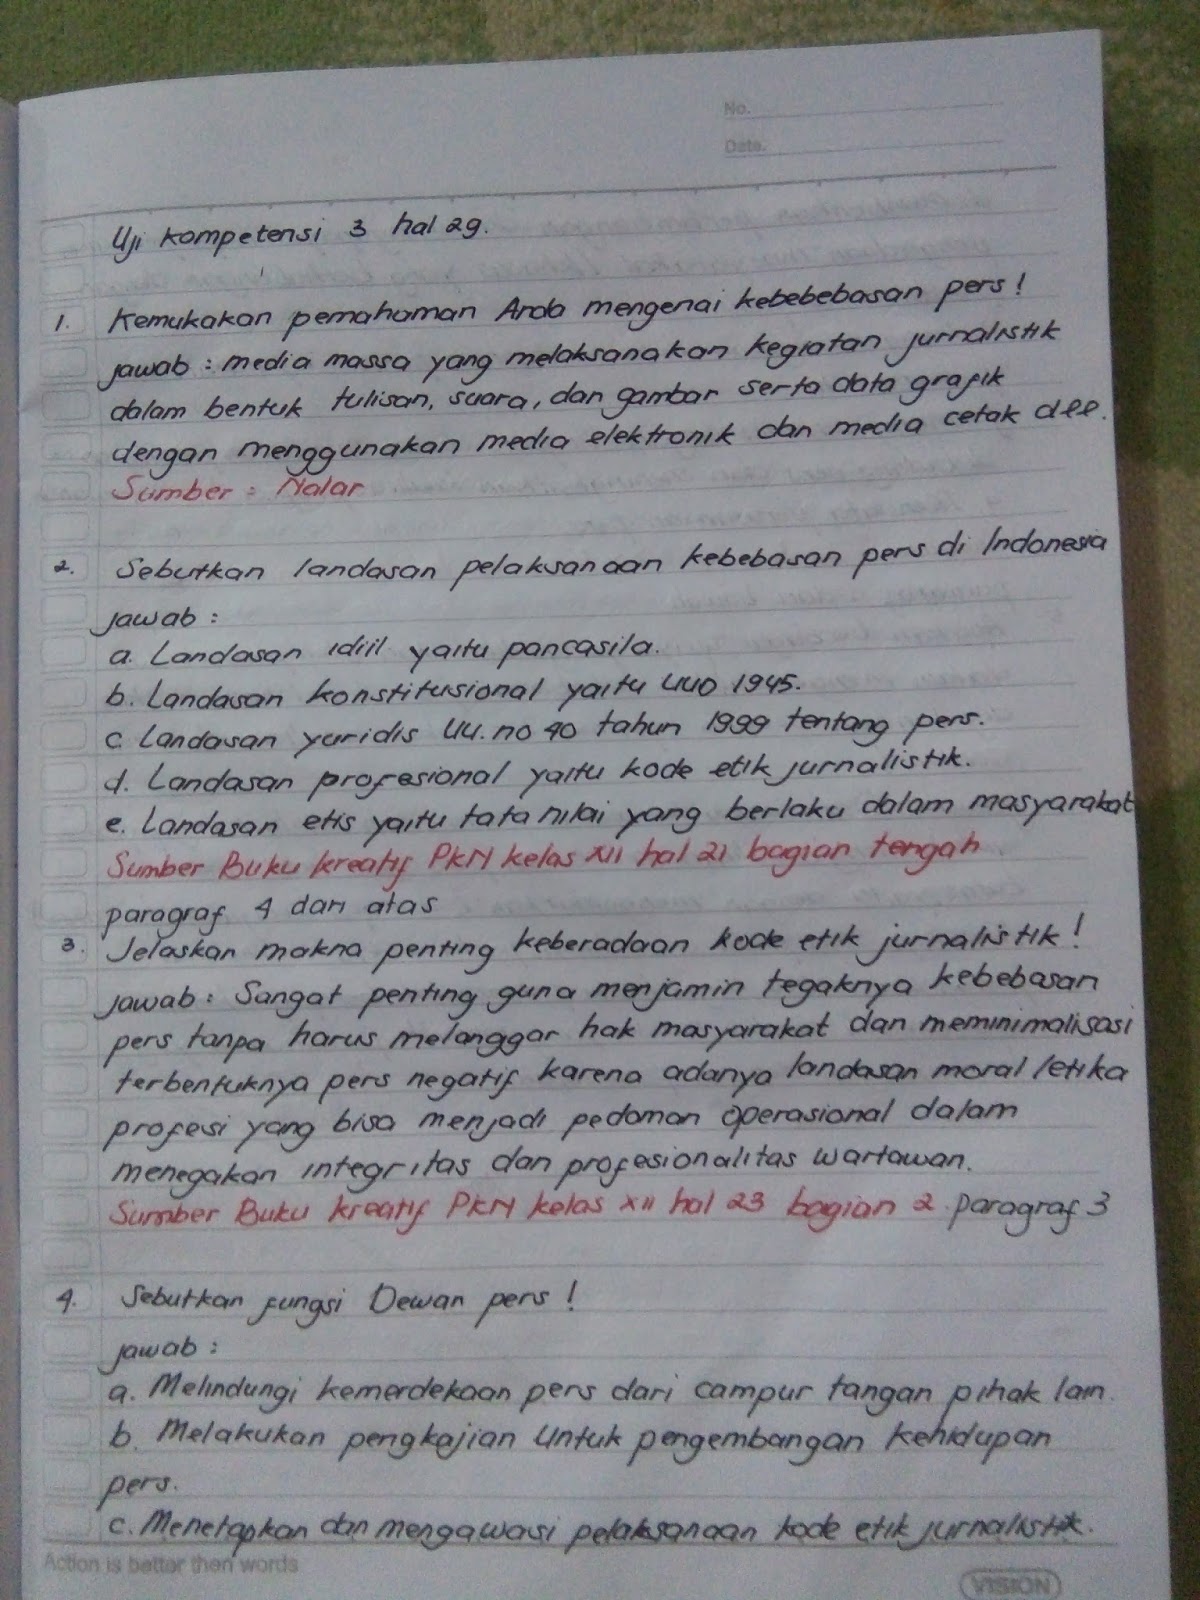 No.
Date.
Uji kompetensi 3 hal 29.
1. Kemukakan pemahaman Anda mengenai kebebebasan pers!
jawab : media massa yang melaksanakan kegiatan jurnalistik
dalam bentuk tulisan, suara, dan gambar serta data grafik
dengan menggunakan media elektronik dan media cetak dll.
Sumber : Nalar
2. Sebutkan landasan pelaksanaan kebebasan pers di Indonesia
jawab :
a. Landasan idiil yaitu pancasila.
b. Landasan konstitusional yaitu UUD 1945.
c. Landasan yuridis UU. no 40 tahun 1999 tentang pers.
d. Landasan profesional yaitu kode etik jurnalistik.
e. Landasan etis yaitu tata nilai yang berlaku dalam masyarakat
Sumber Buku kreatif PKN kelas XII hal 21 bagian tengah
paragraf 4 dari atas
3. Jelaskan makna penting keberadaan kode etik jurnalistik!
jawab : Sangat penting guna menjamin tegaknya kebebasan
pers tanpa harus melanggar hak masyarakat dan meminimalisasi
terbentuknya pers negatif karena adanya landasan moral /etika
profesi yang bisa menjadi pedoman operasional dalam
menegakan integritas dan profesionalitas wartawan.
Sumber Buku kreatif PKN kelas XII hal 23 bagian 2 paragraf 3
4. Sebutkan fungsi Dewan pers!
jawab :
a. Melindungi kemerdekaan pers dari campur tangan pihak lain.
b. Melakukan pengkajian untuk pengembangan kehidupan
pers.
c. Menetapkan dan mengawasi pelaksanaan kode etik jurnalistik.
Action is better then words
VISION